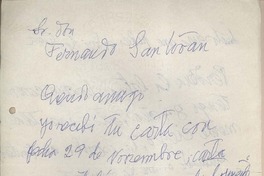 Sr. don
Fernando Santiván
Querido amigo
yo recibí tu carta con
fecha 29 de noviembre, carta